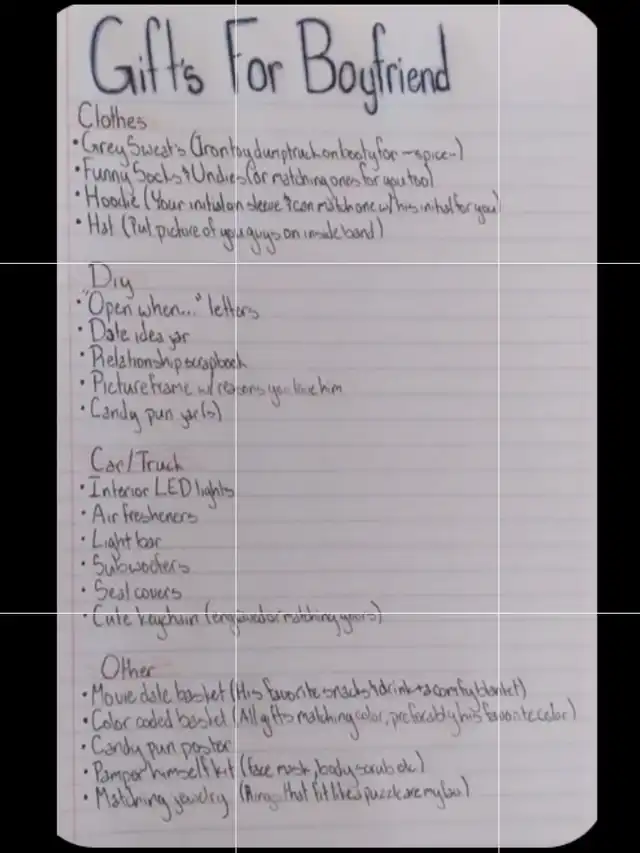 Gift's For Boyfriend
Clothes
• Grey Sweats (Iron toy dumptruck on booty for ~spice~)
• Funny Socks & Undies (or matching ones for you too)
• Hoodie (Your initial on sleeve & can match one w/ his initial for you)
• Hat (Put picture of you guys on inside band)
Diy
• "Open when..." letters
• Date idea jar
• Relationship scrapbook
• Picture frame w/ reasons you love him
• Candy pun jar(s)
Car/Truck
• Interior LED lights
• Air fresheners
• Light bar
• Subwoofers
• Seat covers
• Cute keychain (engraved or matching yours)
Other
• Movie date basket (His favorite snacks & drink + a comfy blanket)
• Color coded basket (All gifts matching color, preferably his favorite color)
• Candy pun poster
• Pamper himself kit (face mask, body scrub etc.)
• Matching jewelry (Rings that fit like puzzle are my fav)